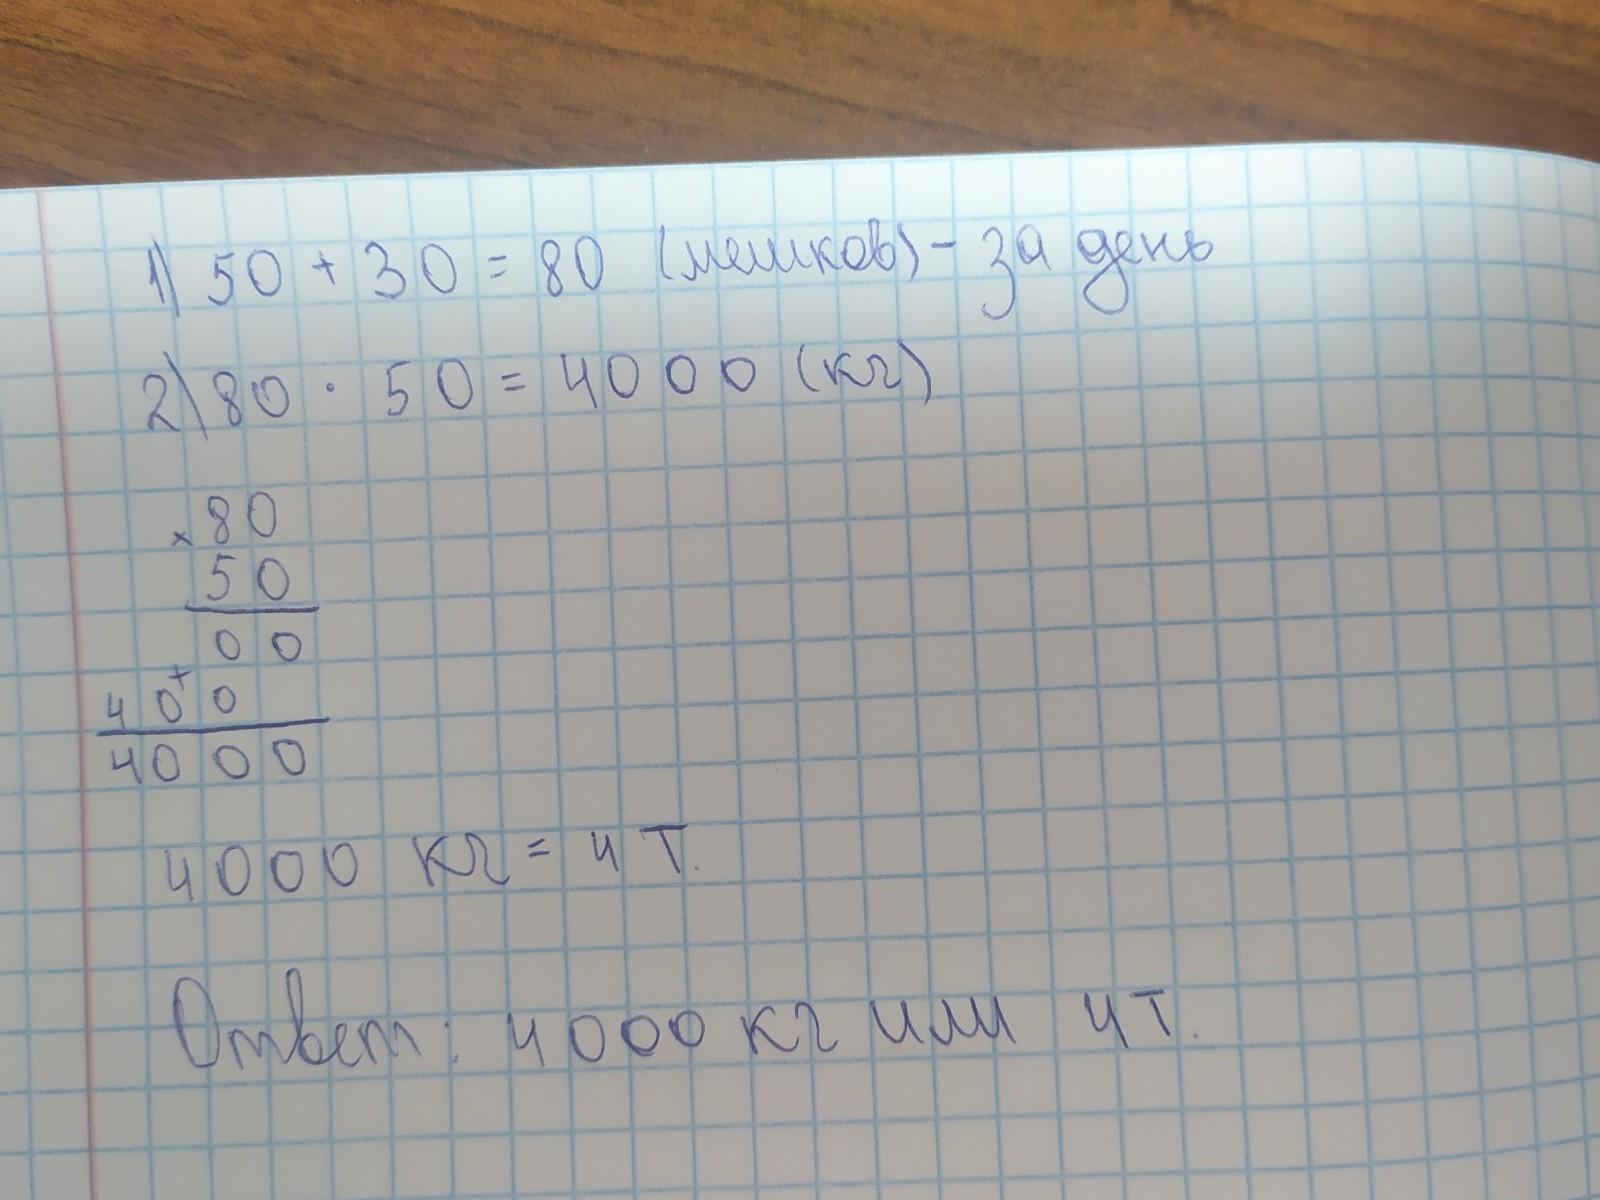 1) 50 + 30 = 80 (мешков) - за день
2) 80 · 50 = 4000 (кг)
× 80
50
00
+
400
4000
4000 кг = 4 т.
Ответ: 4000 кг или 4 т.